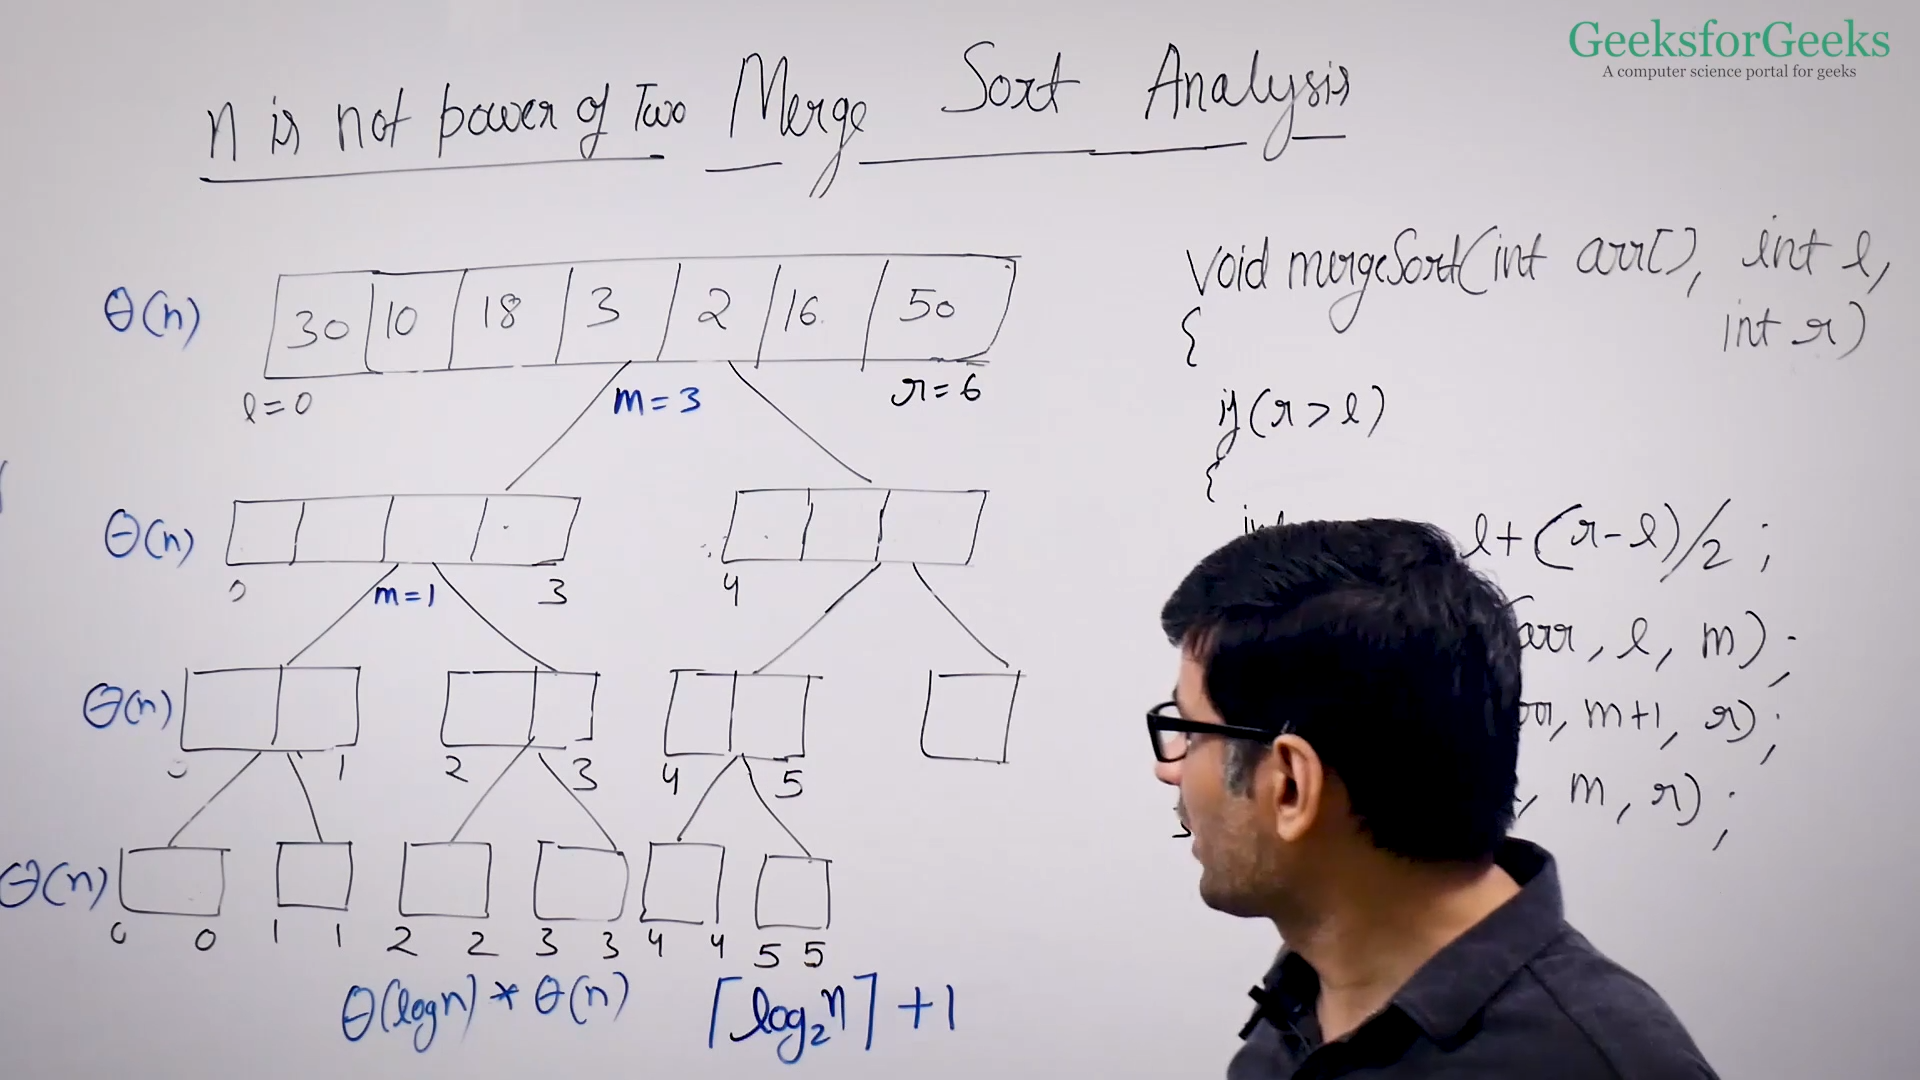 GeeksforGeeks
A computer science portal for geeks
n is not power of Two Merge Sort Analysis
θ(n) 30 10 18 3 2 16 50
l=0 m=3 r=6
θ(n)
0 m=1 3 4
θ(n)
0 1 2 3 4 5
θ(n)
0 0 1 1 2 2 3 3 4 4 5 5
θ(logn) * θ(n) ⌈log₂n⌉ + 1
void mergeSort(int arr[], int l,
int r)
{
if(r>l)
{
int l+(r-l)/2;
arr, l, m);
m+1, r);
, m, r);